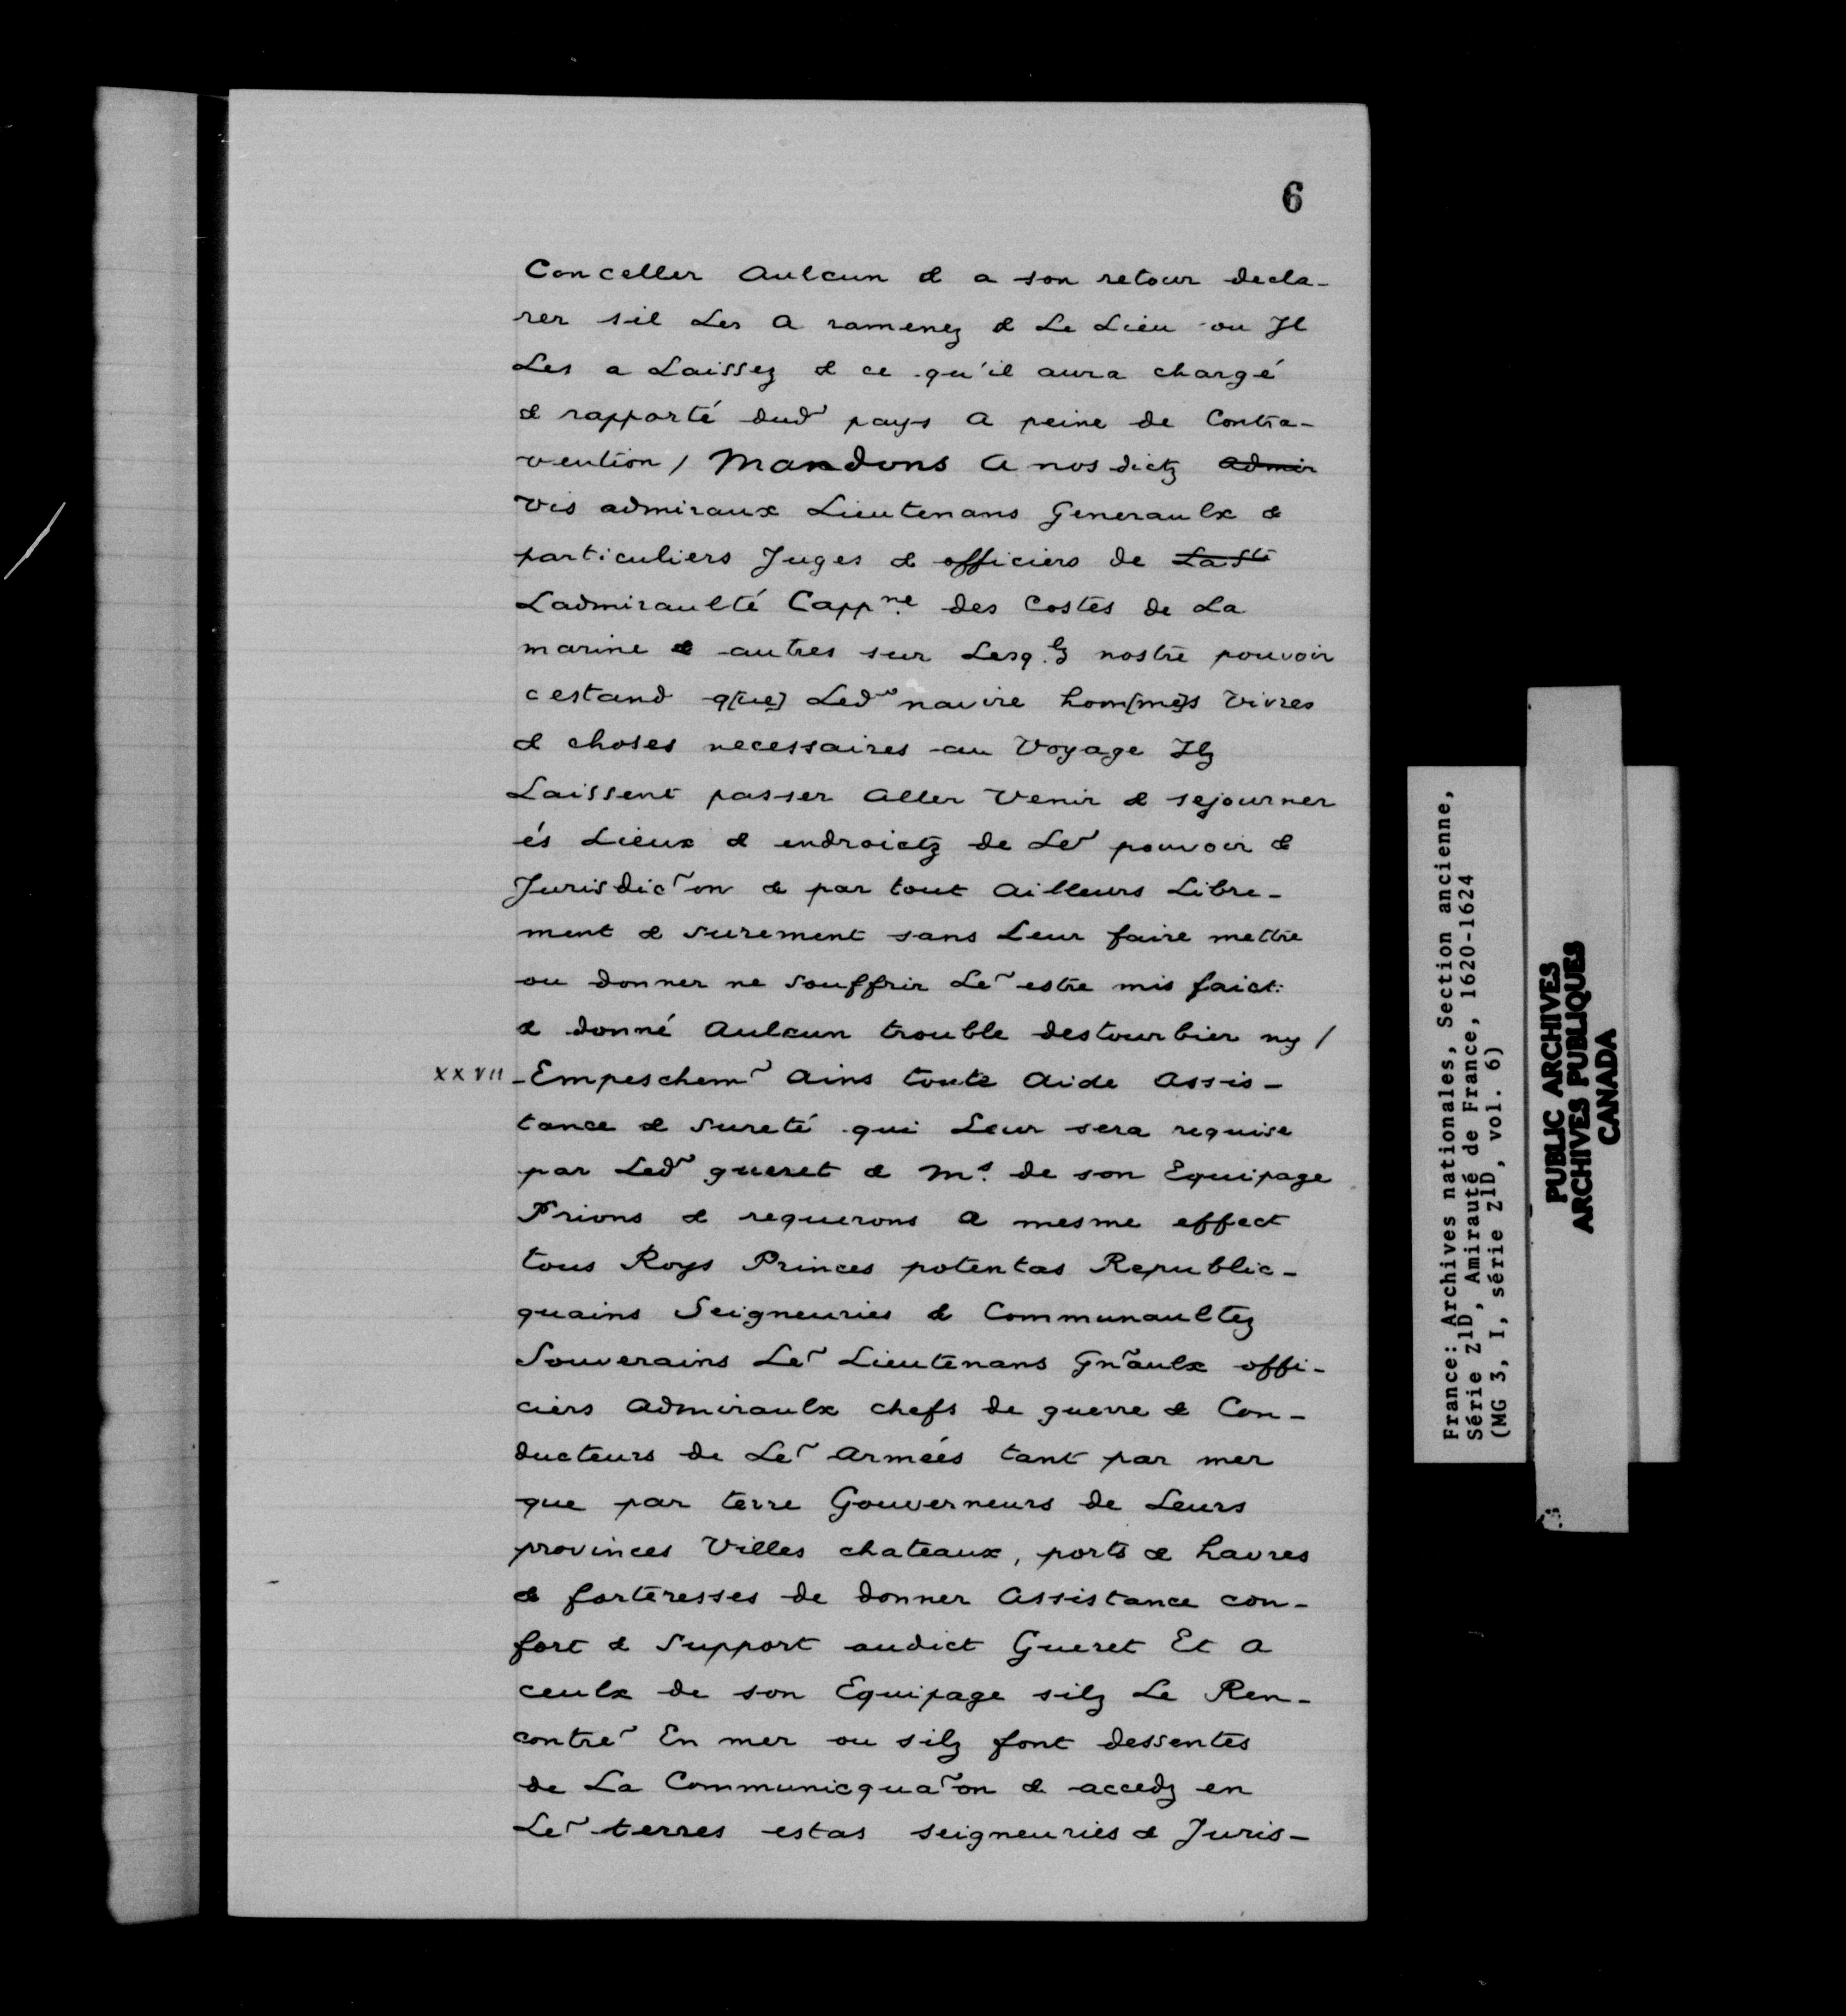 6
Conceller Aulcun & a son retour decla-
rer sil Les A ramenez & Le Lieu ou Il
Les a Laissez & ce qu'il aura chargé
& rapporté dud~ pays A peine de Contra-
vention / Mandons A nos dictz Admir
Vis admiraux Lieutenans Generaulx &
particuliers Juges & officiers de
Ladmiraulté Capp.ne des Costes de La
marine & autres sur Lesq.lz nostre pouvoir
cestand q[ue] Led~ navire hom[me]s Vivres
& choses necessaires au Voyage Ilz
Laissent passer Aller Venir & sejourner
és Lieux & endroictz de Le~ pouvoir &
Jurisdic~on & par tout Ailleurs Libre-
ment & surement sans Leur faire mettre
ou donner ne souffrir Le~ estre mis faict:
& donné Aulcun trouble destourbier ny /
XXVII - Empeschem~ Ains toute Aide Assis-
tance & sureté qui Leur sera requise
par Led~ gueret & Ms. de son Equipage
Prions & requerons A mesme effect
tous Roys Princes potentas Republic-
quains Seigneuries & Communaultez
Souverains Le~ Lieutenans Gn~aulx offi-
ciers Admiraulx chefs de guerre & Con-
ducteurs de Le~ Armées tant par mer
que par terre Gouverneurs de Leurs
provinces Villes chateaux, ports & havres
& forteresses de donner Assistance con-
fort & Support audict Gueret Et A
ceulx de son Equipage silz Le Ren-
contre~ En mer ou silz font dessentes
de La Communicqua~on & accedz en
Le~ terres estas seigneuries & Juris-
France: Archives nationales, Section ancienne,
Série Z1D, Amirauté de France, 1620-1624
(MG 3, I, série Z1D, vol. 6)
PUBLIC ARCHIVES
ARCHIVES PUBLIQUES
CANADA